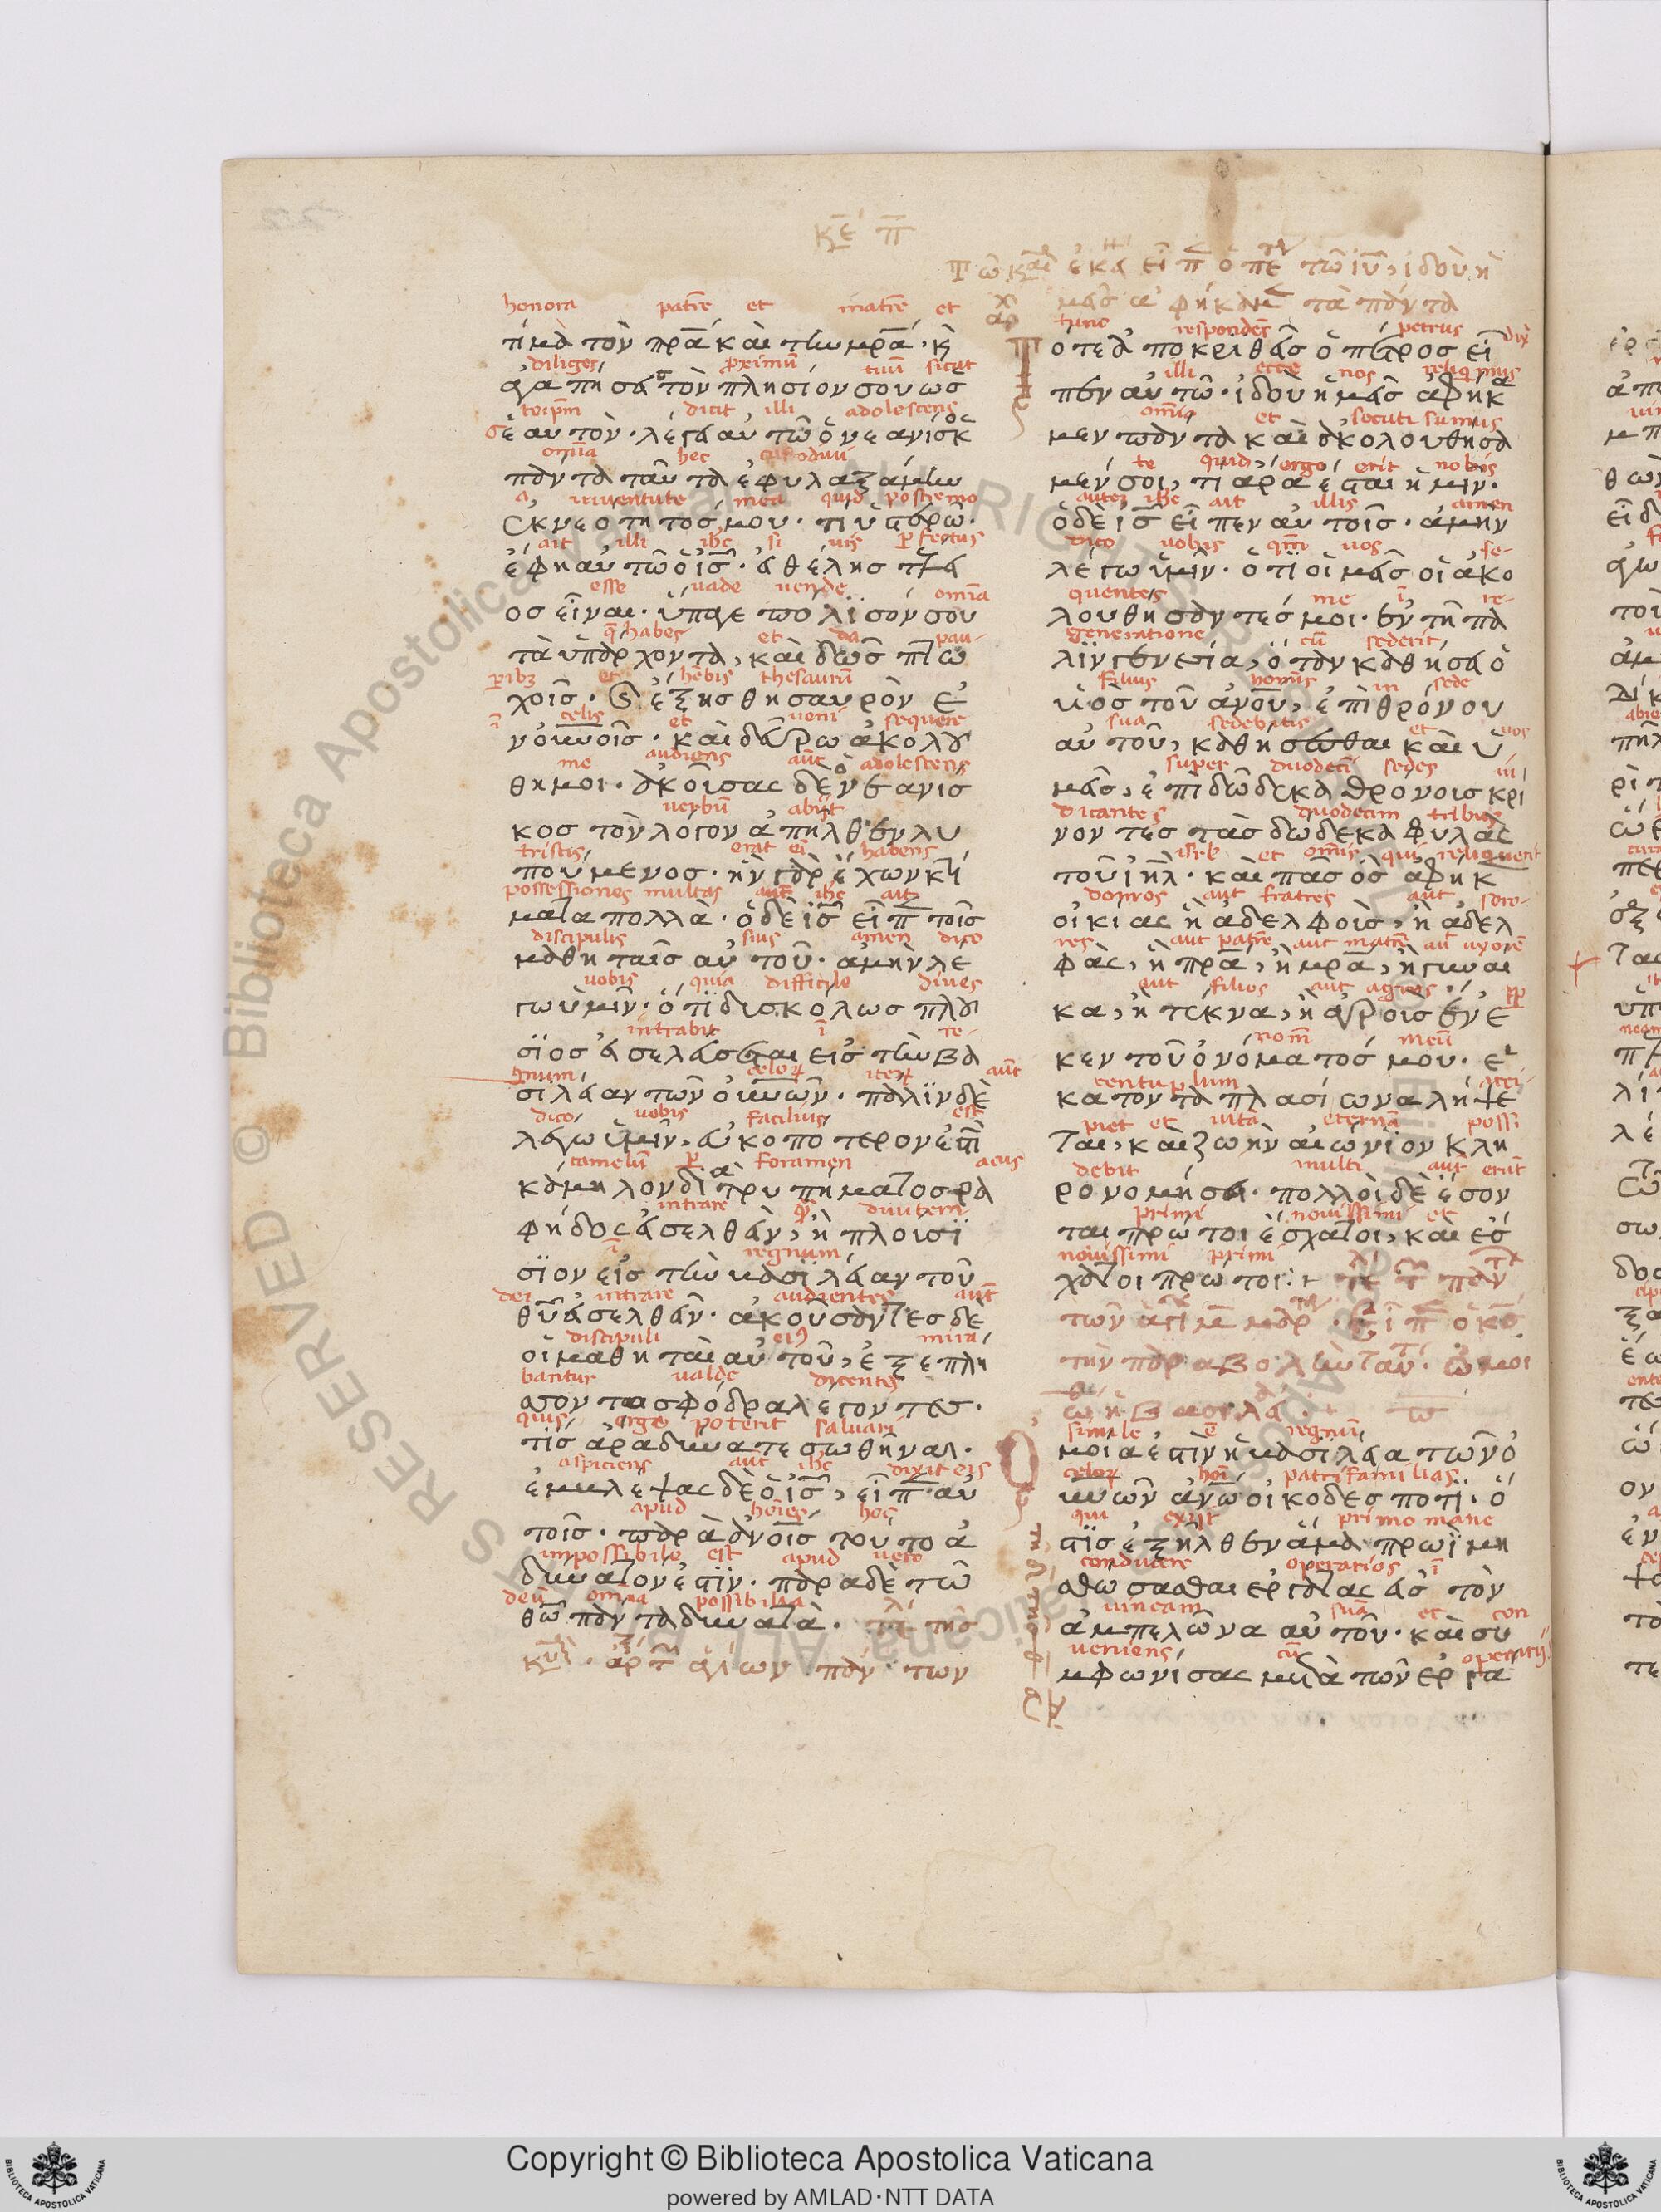 κε π
τω και εκει ειπ ο πε τω ιυ, ιδου η
μας αφηκαμ τα παντα
honora patre et matre et
τίμα τὸν πρα καὶ τὴν μρα · κ
diliges proximu tuu sicut
ἀγαπήσεις τὸν πλησίον σου ὡς
teipm dicit illi adolescens
σεαυτόν · λέγει αὐτῶ ὁ νεανίσκος
omia hec custodiui
πάντα ταῦτα ἐφυλαξάμην
a iuuentute mea quid postremo
ἐκ νεότητός μου · τί ὑστερῶ ·
ait illi ihc si uis perfectus
ἔφη αὐτῶ ὁ ις · εἰ θέλης τέλει
esse uade uende omia
ος εἶναι · ὕπαγε πώλισόν σου
que habes et da pau-
τὰ ὑπάρχοντα, καὶ δὼς πτω
peribus et hebis thesauru
χοῖς · καὶ ἕξης θησαυρὸν ἐ
i celis et ueni sequere
ν οὐνοῖς · καὶ δεῦρω ἀκολού
me audiens aut adolescens
θη μοι · ἀκοίσας δὲ ὁ νεανίσ
uerbu abijt
κος τὸν λόγον ἀπῆλθεν λυ
tristis erat ei habens
πούμενος · ἦν γὰρ ἔχων κτή
possessiones multas aut ihc ait
ματα πολλὰ · ὁ δὲ ις εἶπ τοῖς
discipulis suis amen dico
μαθηταῖς αὐτοῦ · ἀμὴν λέ
uobis quia difficile diues
γω ὑμῖν · ὅτι δισκόλως πλού
intrabit i re-
σϊος εἰσελεύσεται εἰς τὴν βα
gnum celor iter aut
σιλείαν τῶν οὐνῶν · πάλϊν δὲ
dico uobis facilius est
λέγω ὑμῖν, εὐκοπότερον ἐστὶ
camelu per foramen acus
κάμηλον διὰ τρυπήματος ρα
intrare quam diuitem
φήδος εἰσελθεῖν, ἢ πλοίσϊ
i regnum
σϊον εἰς τὴν βασϊλείαν τοῦ
dei intrare audientes aut
θυ εἰσελθεῖν · ἀκούσαντες δὲ
discipuli eius mira
οἱ μαθηταὶ αὐτοῦ, ἐξεπλή
bantur valde dicentes
σσοντο σφόδρα λέγοντες ·
quis ergo poterit saluari
τίς ἄρα δύναται σωθῆναι ·
aspiciens aut ihc dixit eis
ἐμβλέψας δὲ ὁ ις, εἶπ αὐ
apud hoies hoc
τοῖς · παρὰ ἀνοῖς τοῦτο ἀ
impossibile est apud uero
δύνατόν ἐστϊν · παρὰ δὲ τῶ
deu omia possibilia
θω πάντα δυνατὰ · τελ τῆς
κυρ · ἀρτ ἁγίων παν των
tunc respondes petrus dix
Τότε ἀποκριθεὶς ὁ πέτρος εἶ
illi ecce nos reliquimus
πεν αὐτῶ · ἰδοὺ ἡμᾶς ἀφήκα
omia et secuti sumus
μεν πάντα καὶ ἀκολουθήσα
te quid ergo erit nobis
μέν σοι, τί ἄρα ἔσται ἡμῖν ·
autez ihc ait illis amen
ὁ δὲ ις εἶπεν αὐτοῖς · ἀμὴν
dico uobis qm uos se-
λέγω ὑμῖν · ὅτϊ οἱμᾶς οἱ ἀκο
quentes me i re-
λουθήσαντές μοι · ἐν τῆ πα
generatione cu sederit
λϊνγενεσία, ὅταν καθήσει ὁ
filius hominis in sede
υἱὸς τοῦ ἀνου, ἐπὶ θρόνου
sua sedebitis et uos
αὐτοῦ, καθήσεσθαι καὶ ὑ
super duodeci sedes iu
μᾶς, ἐπὶ δώδεκα θρόνοις κρί
dicantes duodecim tribus
νοντες τὰς δώδεκα φυλὰς
isrl et omis qui reliquerit
τοῦ ἰηλ · καὶ πᾶς ὃς ἀφήκ
domos aut fratres aut soro-
οἰκίας ἢ αδελφοὶς, ἢ ἀδελ
res aut patre aut matre aut uxore
φὰς, ἢ πρα, ἢ μρα, ἢ γυναι
aut filios aut agros pp
κα, ἢ τέκνα, ἢ ἀγροὶς ἕνε
nom meu
κεν τοῦ ὀνόματός μου · ἑ
centuplum acci-
κατονταπλασίωνα λήψε
piet et uita eterna possi
ται, καὶ ζωὴν αἰώνϊον κλη
debit multi aut erut
ρονομήσει · πολλοὶ δὲ ἔσον
primi nouissimi et
ται πρῶτοι ἔσχατοι, καὶ ἔσ
nouissimi primi
χατοι πρῶτοι · + τελ τ παν
των ἁγι μ μαρ · εἶπ ὁ κσ
τὴν παραβολὴν ταύτ · ὡμοι
ώθη ἡ βασιλεί · +
simile e regnu
Ὁμοία ἐστὶν ἡ βασϊλεία τῶν ὀ
celor hoi patrifamilias
υνῶν ἀνω οἰκοδεσπότϊ · ὅ
qui exijt primo mane
στϊς ἐξῆλθεν ἅμα πρωῒ μη
conducere operarios i
σθώσασθαι ἐργάτας εἰς τὸν
uineam sua et con
ἀμπελῶνα αὐτοῦ · καὶ συ
ueniens cu operarijs
μφωνίσας μετὰ τῶν ἐργα
Copyright © Biblioteca Apostolica Vaticana
powered by AMLAD·NTT DATA